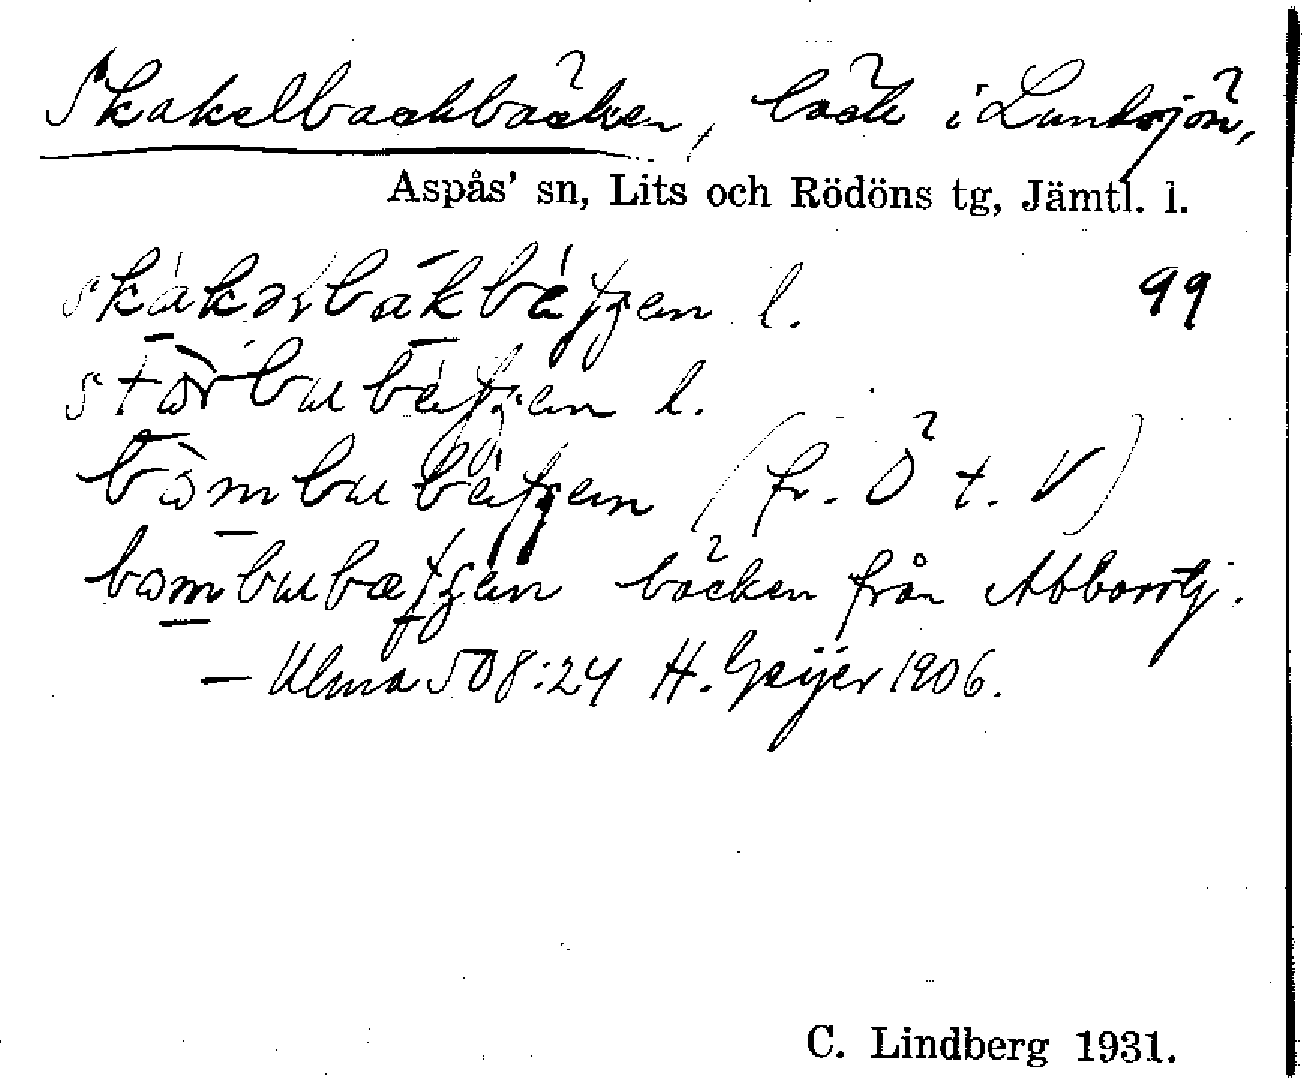 Skakelbackbäcken, bäck i Lundsjön,
Aspås' sn, Lits och Rödöns tg, Jämtl. l.
skákəlbakbétʃen l. 99
stòrbubétʃen l.
bòmbubétʃen (fr. Ö t. V)
bòmbubætʃen bäcken från Abborrtj.
— Ulma 508:24 H. Geijer 1906.
C. Lindberg 1931.